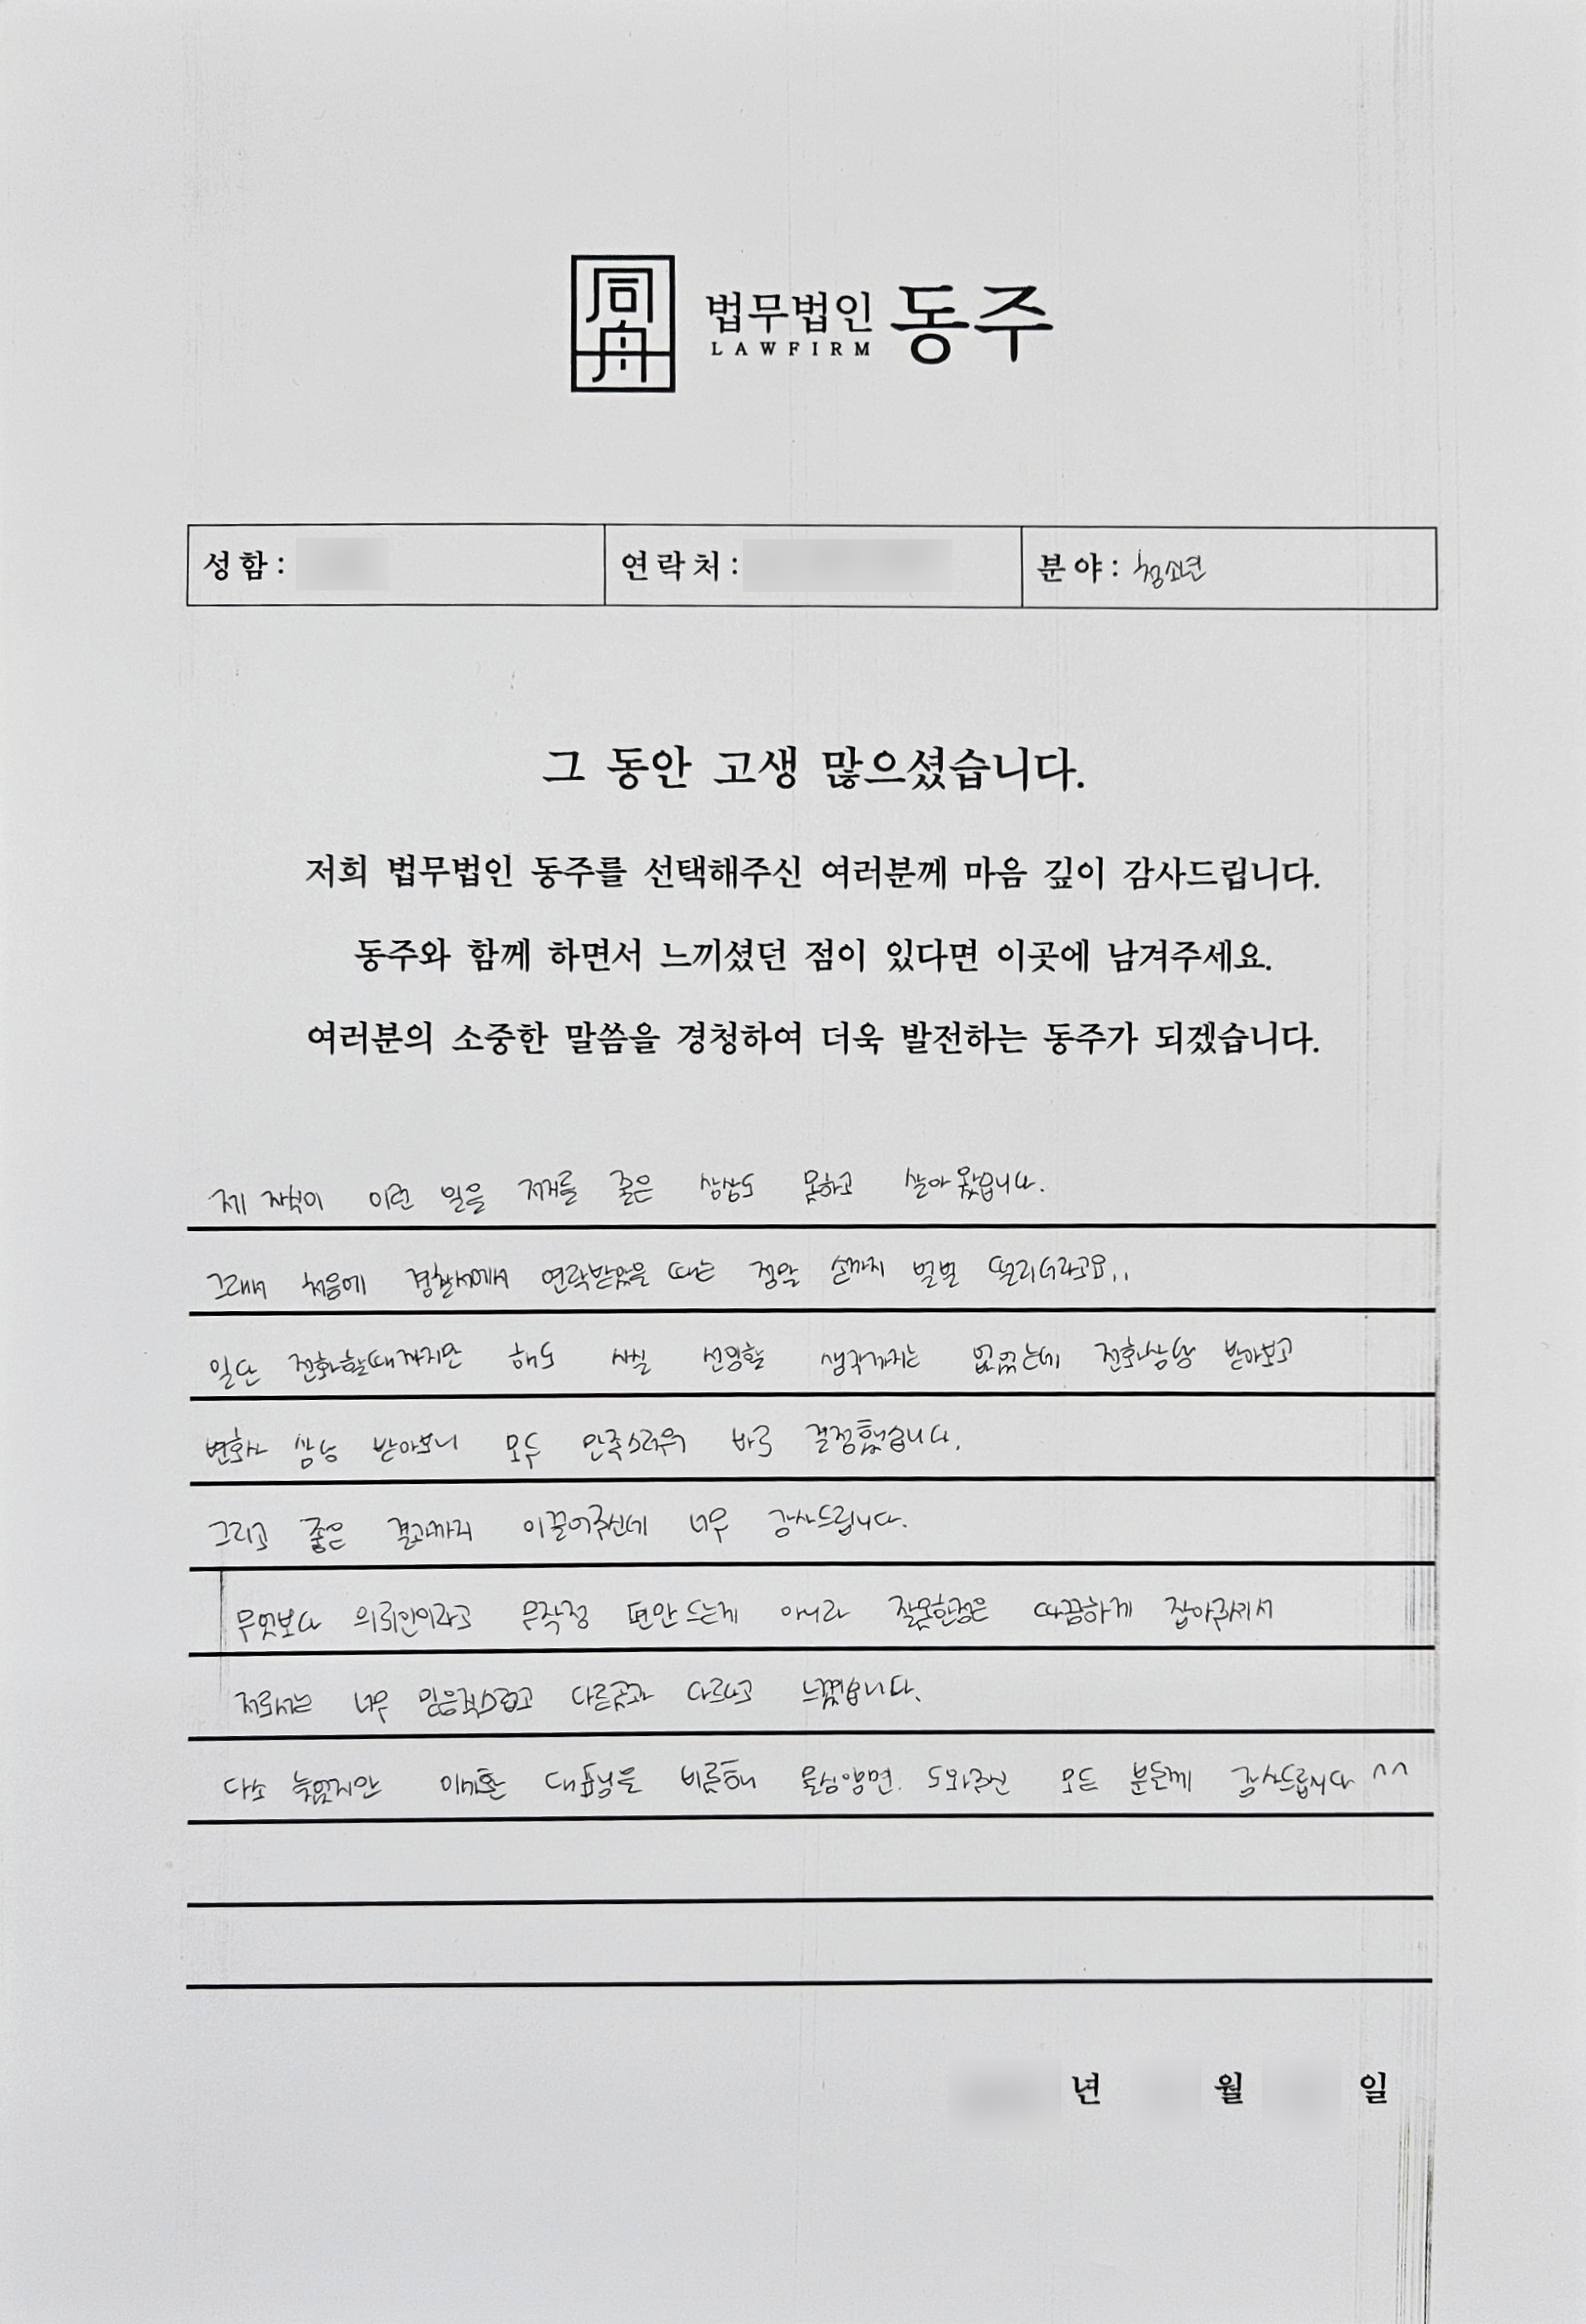 同舟
법무법인 동주
LAWFIRM
성함:
연락처:
분야: 청소년
그 동안 고생 많으셨습니다.
저희 법무법인 동주를 선택해주신 여러분께 마음 깊이 감사드립니다.
동주와 함께 하면서 느끼셨던 점이 있다면 이곳에 남겨주세요.
여러분의 소중한 말씀을 경청하여 더욱 발전하는 동주가 되겠습니다.
제 자식이 이런 일을 저지를 줄은 상상도 못하고 살아왔습니다.
그래서 처음에 경찰서에서 연락받았을 때는 정말 손까지 벌벌 떨리더라고요..
일단 전화할때까지만 해도 사실 선임할 생각까지는 없었는데 전화상담 받아보고
변호사 상담 받아보니 모두 만족스러워 바로 결정했습니다.
그리고 좋은 결과까지 이끌어주신데 너무 감사드립니다.
무엇보다 의뢰인이라고 무작정 편만 드는게 아니라 잘못한점은 따끔하게 잡아주셔서
저로서는 너무 믿음직스럽고 다른곳과 다르다고 느꼈습니다.
다소 늦었지만 이세환 대표님을 비롯해 물심양면 도와주신 모든 분들께 감사드립니다 ^^
년 월 일